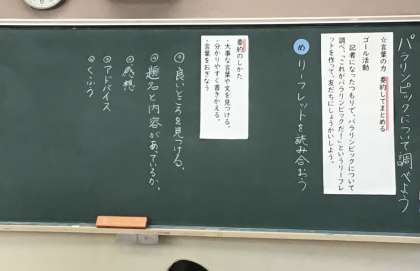 パラリンピックについて調べよう
☆言葉の力 要約してまとめる
ゴール活動
記者になったつもりで、パラリンピックについて
調べ、「これがパラリンピックだ！」というリーフレ
ットを作って、友だちにしょうかいしよう。
め リーフレットを読み合おう
要約のしかた
・大事な言葉や文を見つける。
・分かりやすく書きかえる。
・言葉をおぎなう
良いところを見つける。
題名と内容があているか、
感想
アドバイス
くふう